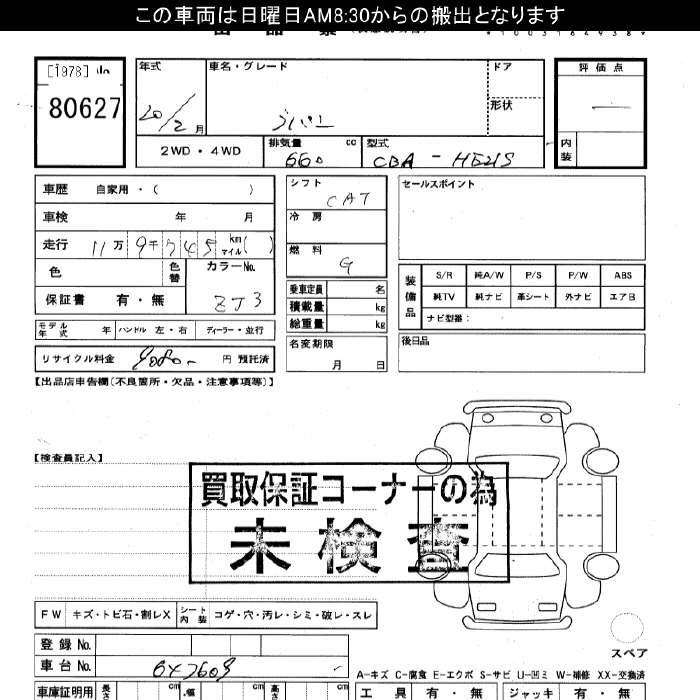 この車両は日曜日AM8:30からの搬出となります
[1978]
80627
年式
20/2月
車名・グレード
ラパン
ドア
形状
評価点
内装
2WD・4WD
排気量 660 cc
型式 CBA-HE21S
車歴 自家用・( )
車検 年 月
走行 11万9千745 km マイル( )
色
色替
カラーNo.
ZJ3
保証書 有・無
シフト CAT
冷房
燃料 G
乗車定員 名
積載量 kg
総重量 kg
セールスポイント
装備品
S/R 純A/W P/S P/W ABS
純TV 純ナビ 革シート 外ナビ エアB
ナビ型番:
モデル年式 年 ハンドル 左・右 ディーラー・並行
名変期限
月 日
後日品
リサイクル料金 9080- 円 預託済
【出品店申告欄(不良箇所・欠品・注意事項等)】
【検査員記入】
買取保証コーナーの為
未検査
FW キズ・トビ石・割レX シート内装 コゲ・穴・汚レ・シミ・破レ・スレ
スペア
登録No.
車台No.
A-キズ C-腐食 E-エクボ S-サビ U-凹ミ W-補修 XX-交換済
車庫証明用 長さ cm 幅 cm 高さ cm
工具 有・無 ジャッキ 有・無